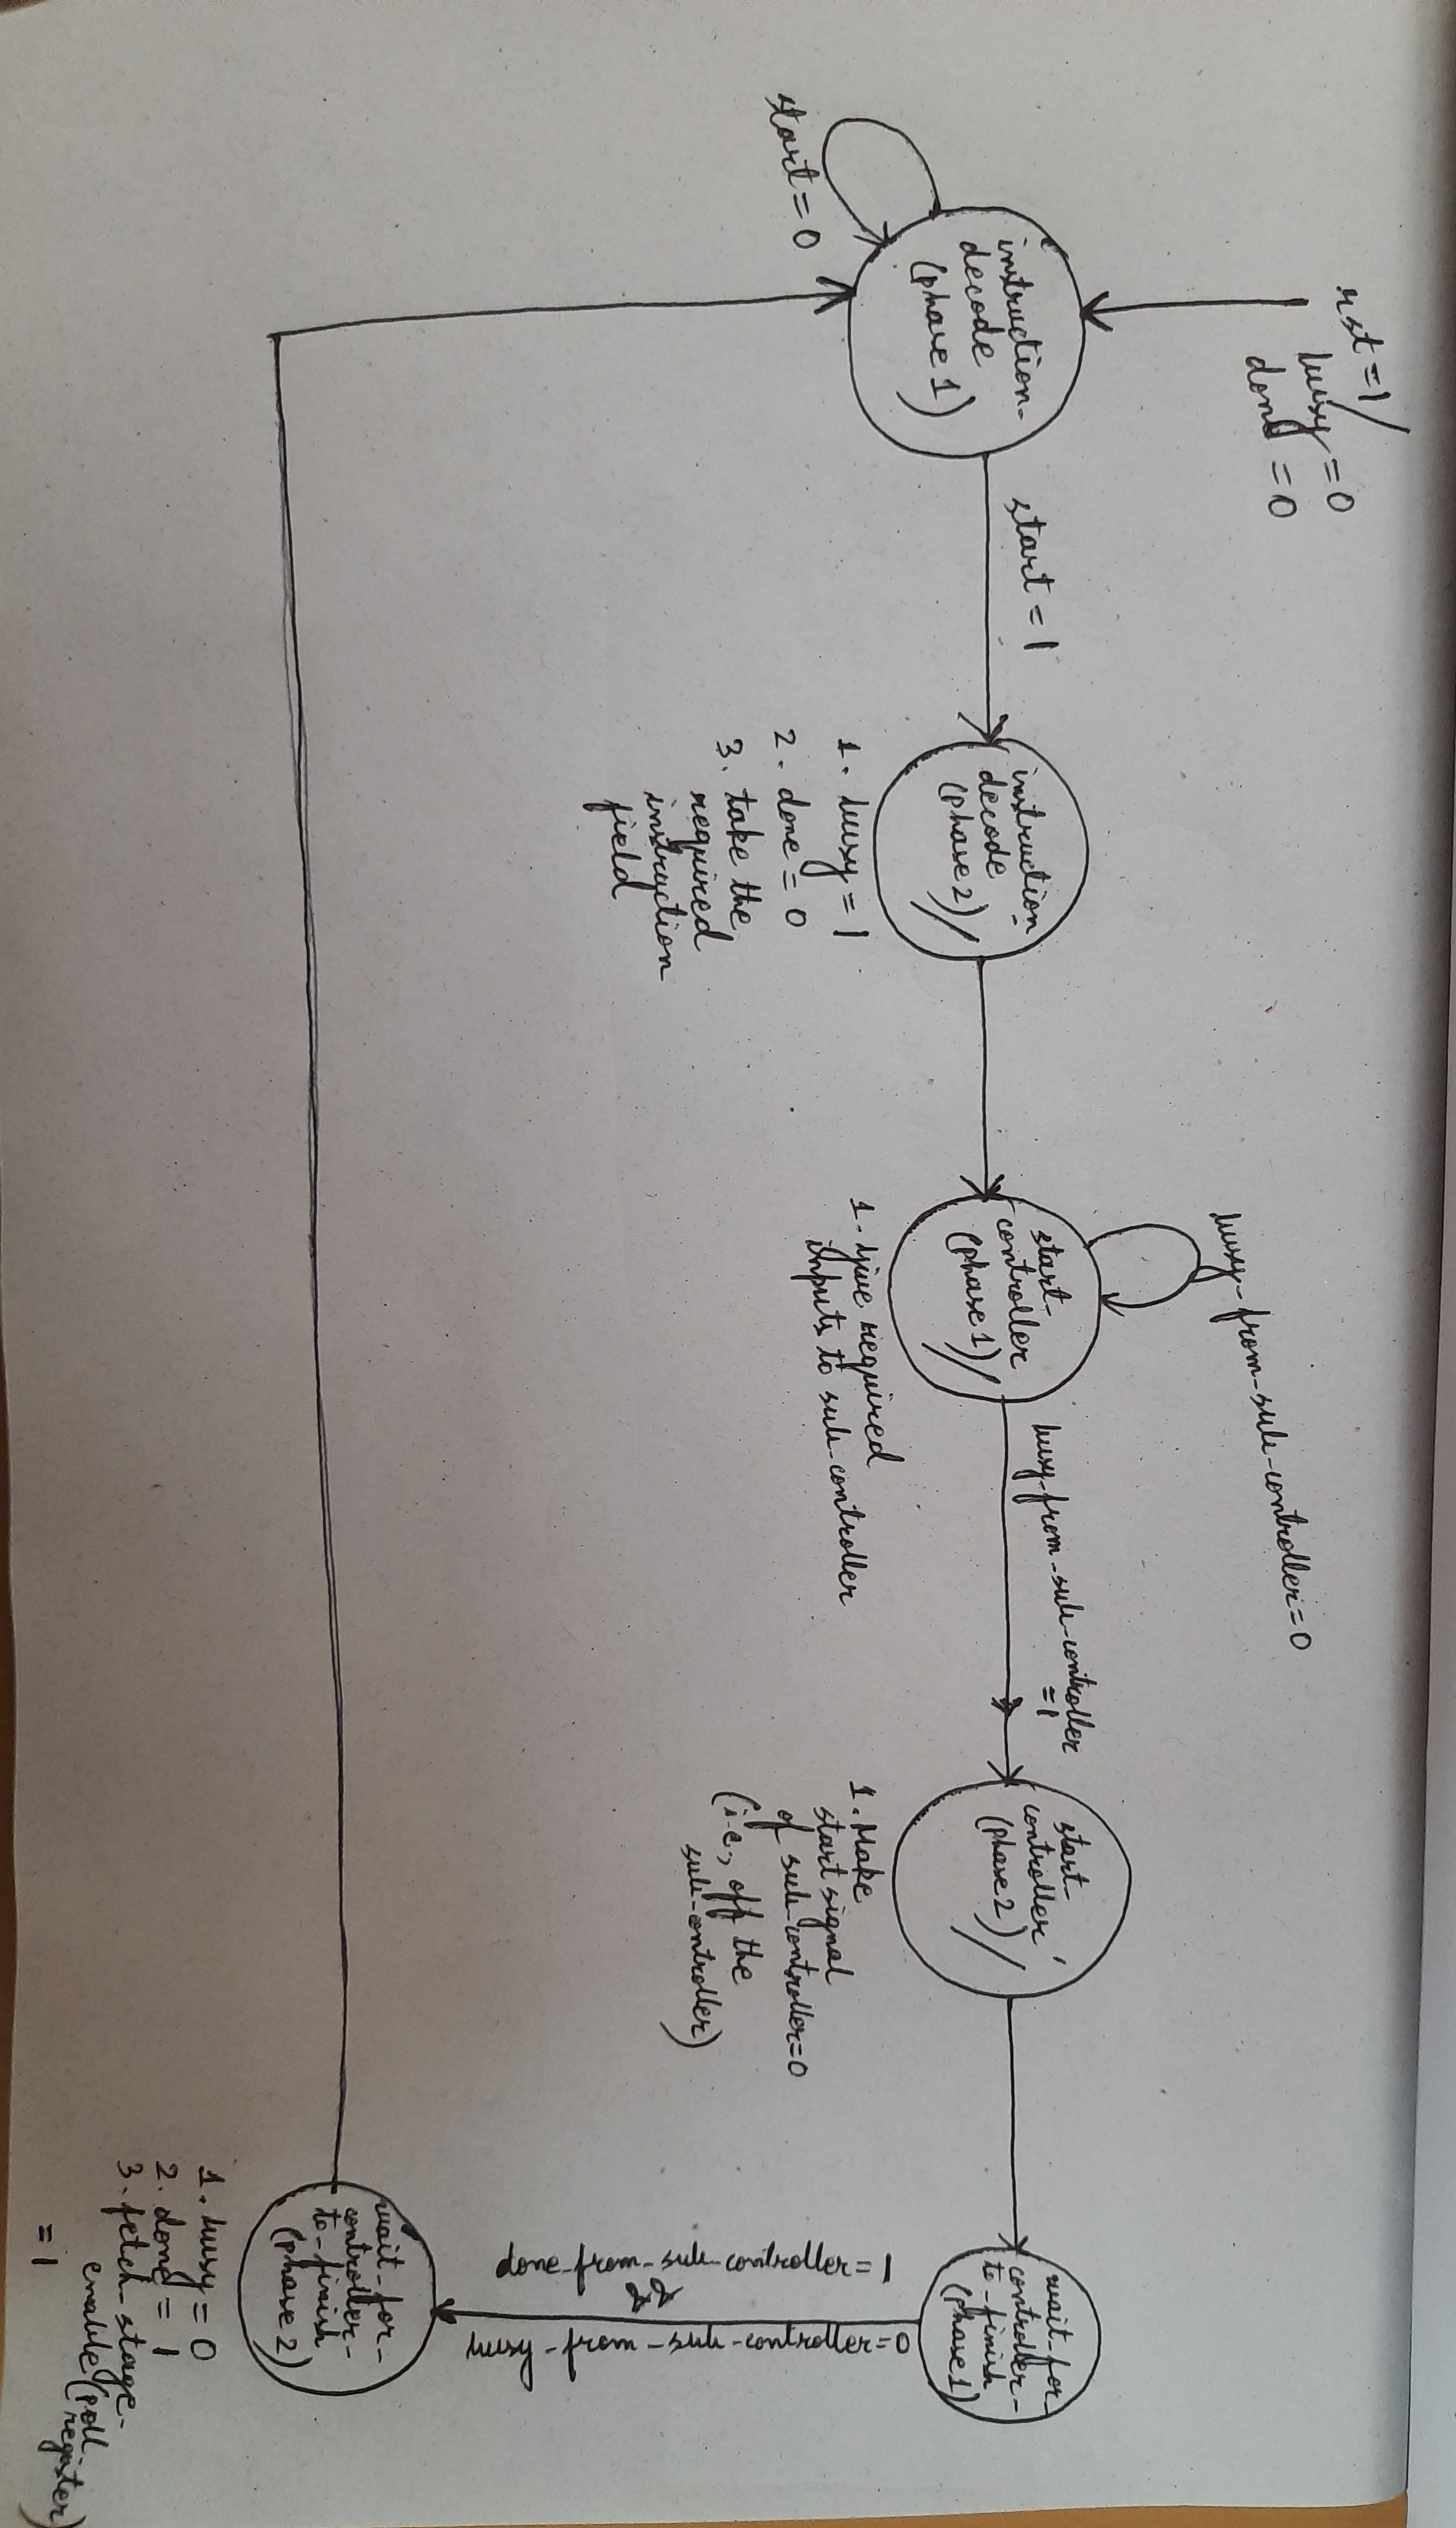 rst=1/
busy=0
done=0
busy-from-sub-controller=0
instruction-
decode
(phase 1)
start=1
start=0
instruction-
decode
(phase 2)/
1. busy=1
2. done=0
3. take the
required
instruction
field
start-
controller
(phase 1)/
1. Give required
inputs to sub-controller
busy-from-sub-controller
=1
start-
controller
(phase 2)/
1. Make
start signal
of sub-controller=0
(i.e., off the
sub-controller)
wait-for-
controller-
to-finish
(phase 1)
done-from-sub-controller=1
&&
busy-from-sub-controller=0
wait-for-
controller-
to-finish
(phase 2)
1. busy=0
2. done=1
3. fetch-stage-
enable (poll
register)
=1